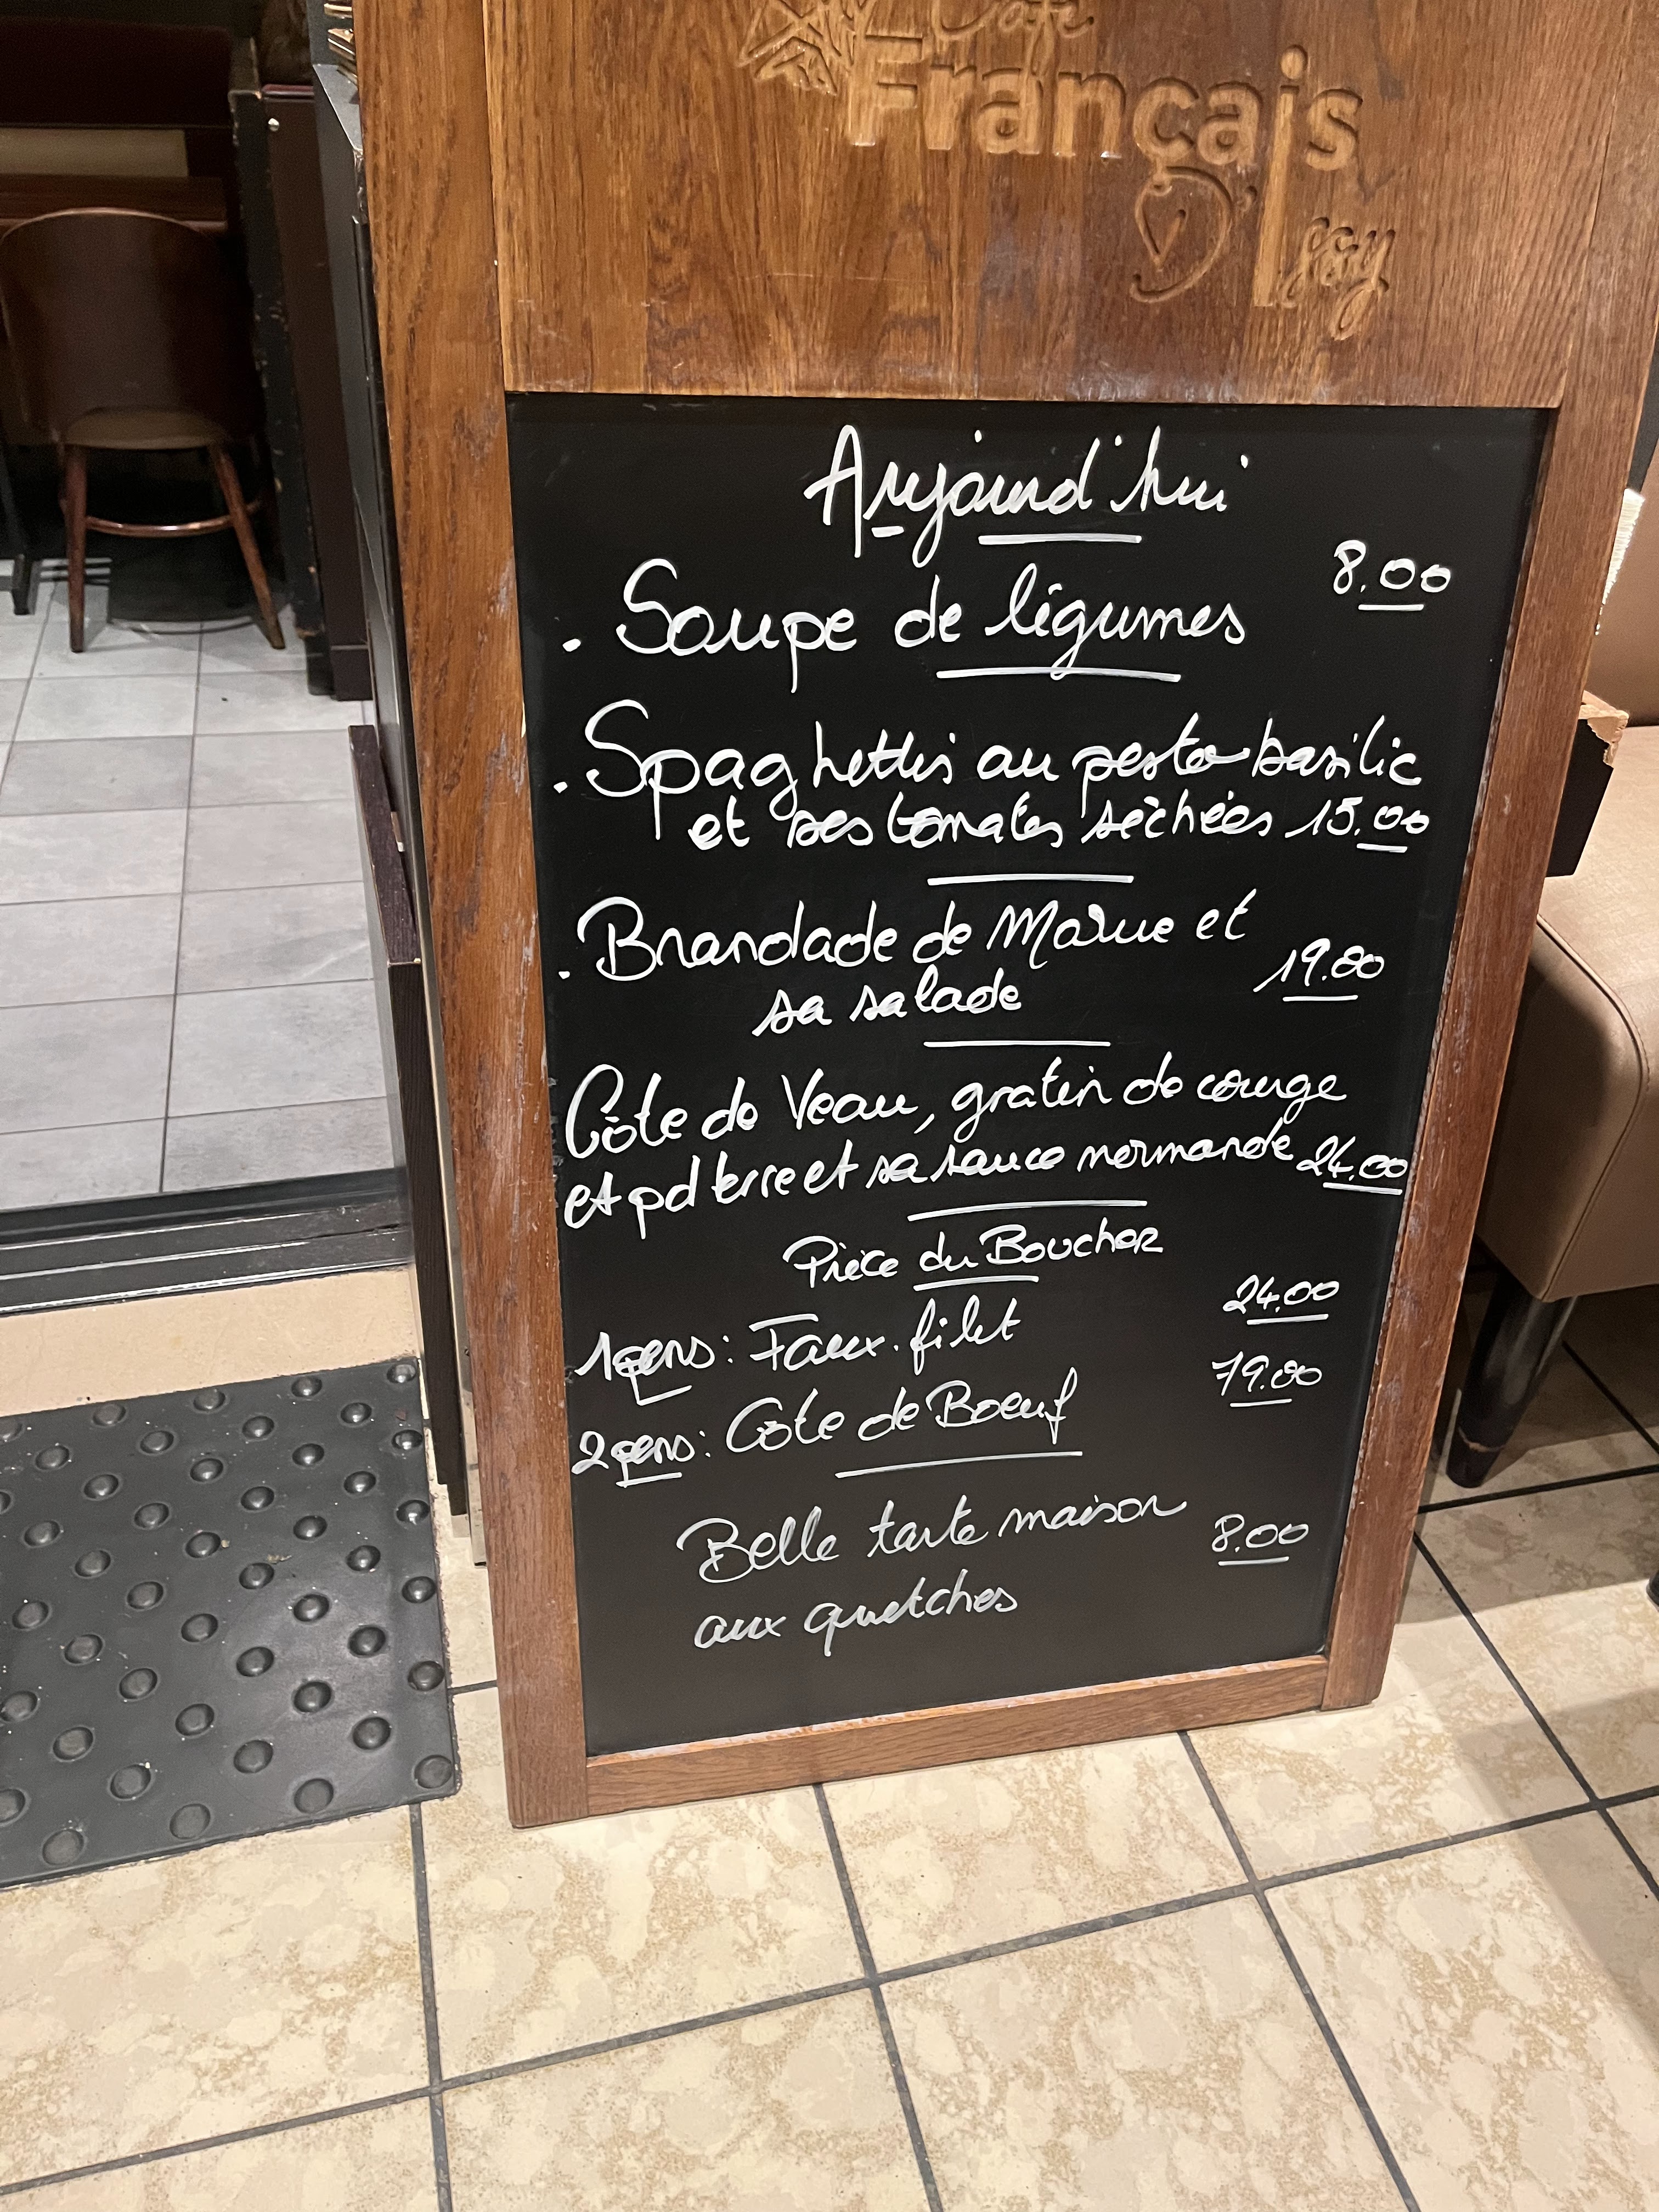 Café
Français
D'Issy
Aujourd'hui
. Soupe de légumes 8.00
. Spaghettis au pesto basilic
et ses tomates séchées 15.00
. Brandade de Morue et
sa salade 19.00
Côte de Veau, gratin de courge
et pd terre et sa sauce normande 24.00
Pièce du Boucher
1 pers : Faux-filet 24.00
2 pers : Côte de Boeuf 79.00
Belle tarte maison 8.00
aux quetches